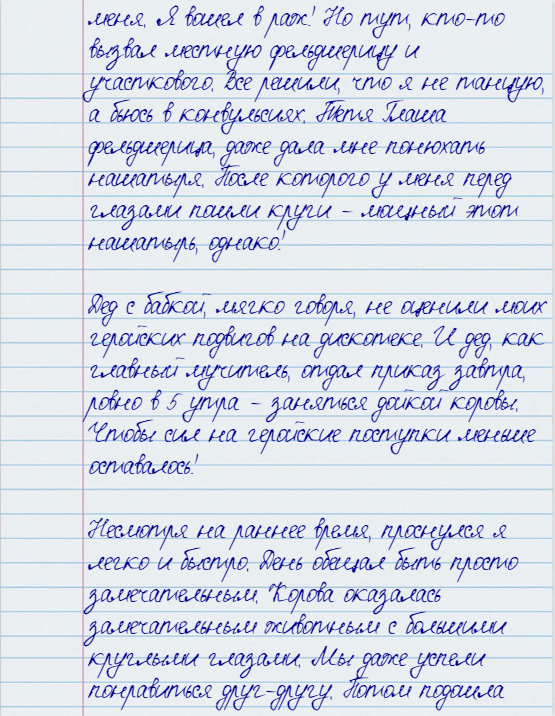 меня. Я вошел в раж! Но тут, кто-то
вызвал местную фельдшерицу и
участкового. Все решили, что я не танцую,
а бьюсь в конвульсиях. Тетя Глаша
фельдшерица, даже дала мне понюхать
нашатыря. После которого у меня перед
глазами пошли круги - мощный этот
нашатырь, однако!
Дед с бабкой, мягко говоря, не оценили моих
геройских подвигов на дискотеке. И дед, как
главный мучитель, отдал приказ завтра,
ровно в 5 утра - заняться дойкой коровы.
Чтобы сил на геройские поступки меньше
оставалось!
Несмотря на раннее время, проснулся я
легко и быстро. День обещал быть просто
замечательным. Корова оказалась
замечательным животным с большими
круглыми глазами. Мы даже успели
понравиться друг-другу. Потом подошла